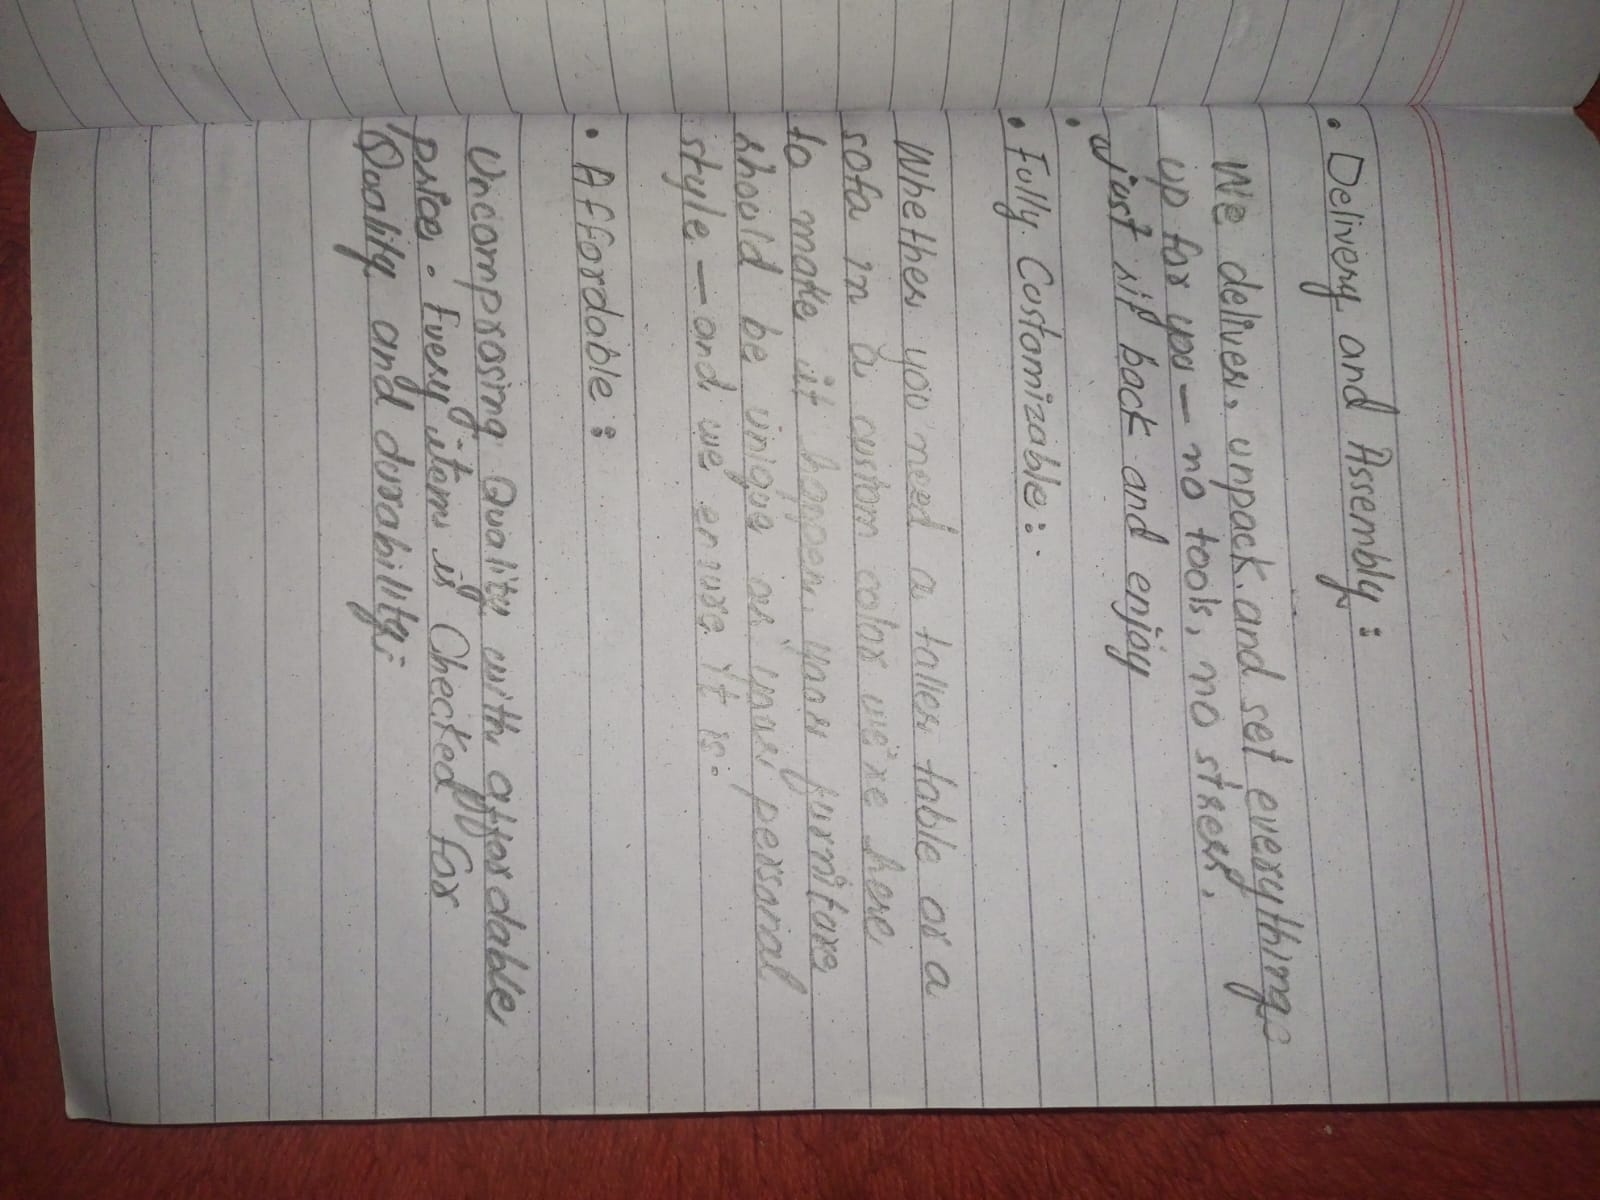 • Delivery and Assembly:
We deliver, unpack and set everything
up for you – no tools, no stress.
• just sit back and enjoy
• Fully Customizable:
Whether you need a taller table or a
sofa in a custom color we're here
to make it happen. your furniture
should be unique as your personal
style – and we ensure it is.
• Affordable:
Uncomprosing Quality with affordable
price. Every item is Checked for
Quality and durability.